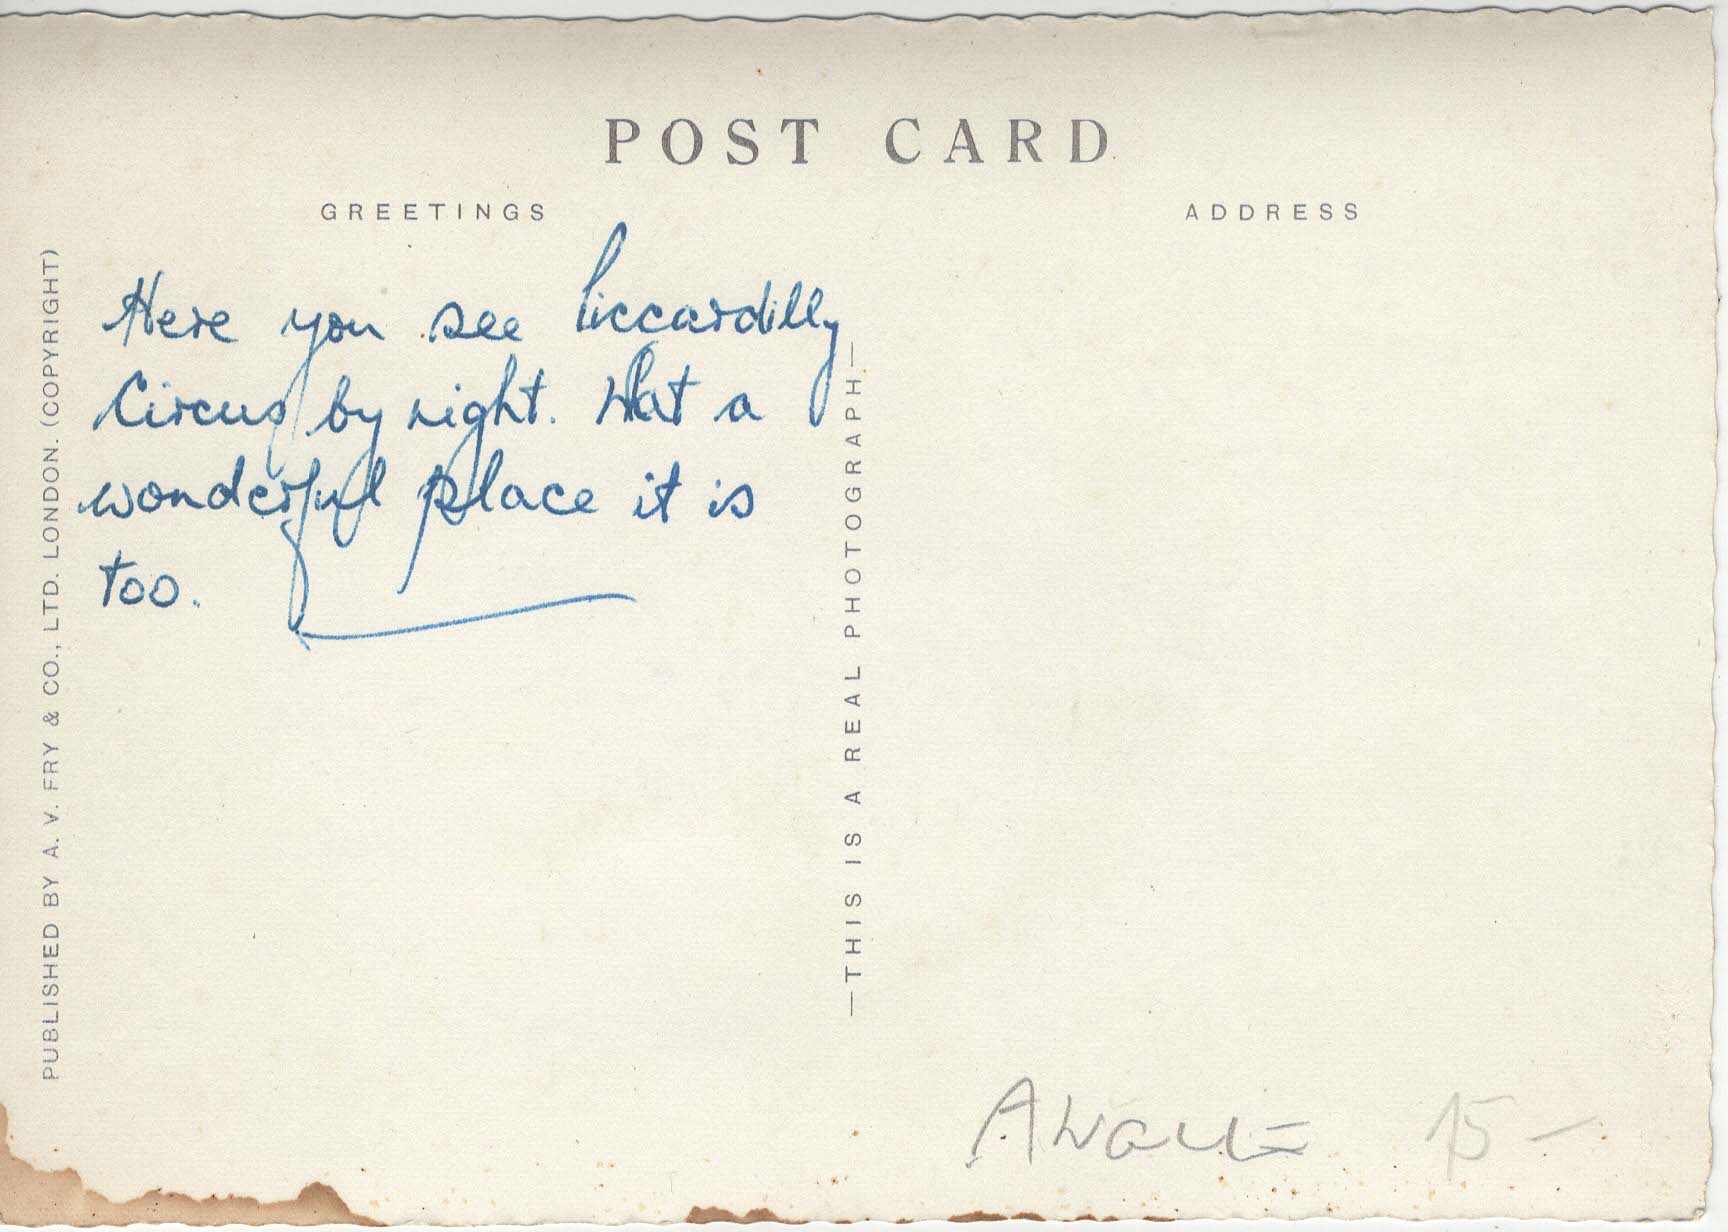 POST CARD
GREETINGS
ADDRESS
Here you see Piccardilly
Circus by night. What a
wonderful place it is
too.
PUBLISHED BY A. V. FRY & CO., LTD. LONDON. (COPYRIGHT)
—THIS IS A REAL PHOTOGRAPH—
15 —